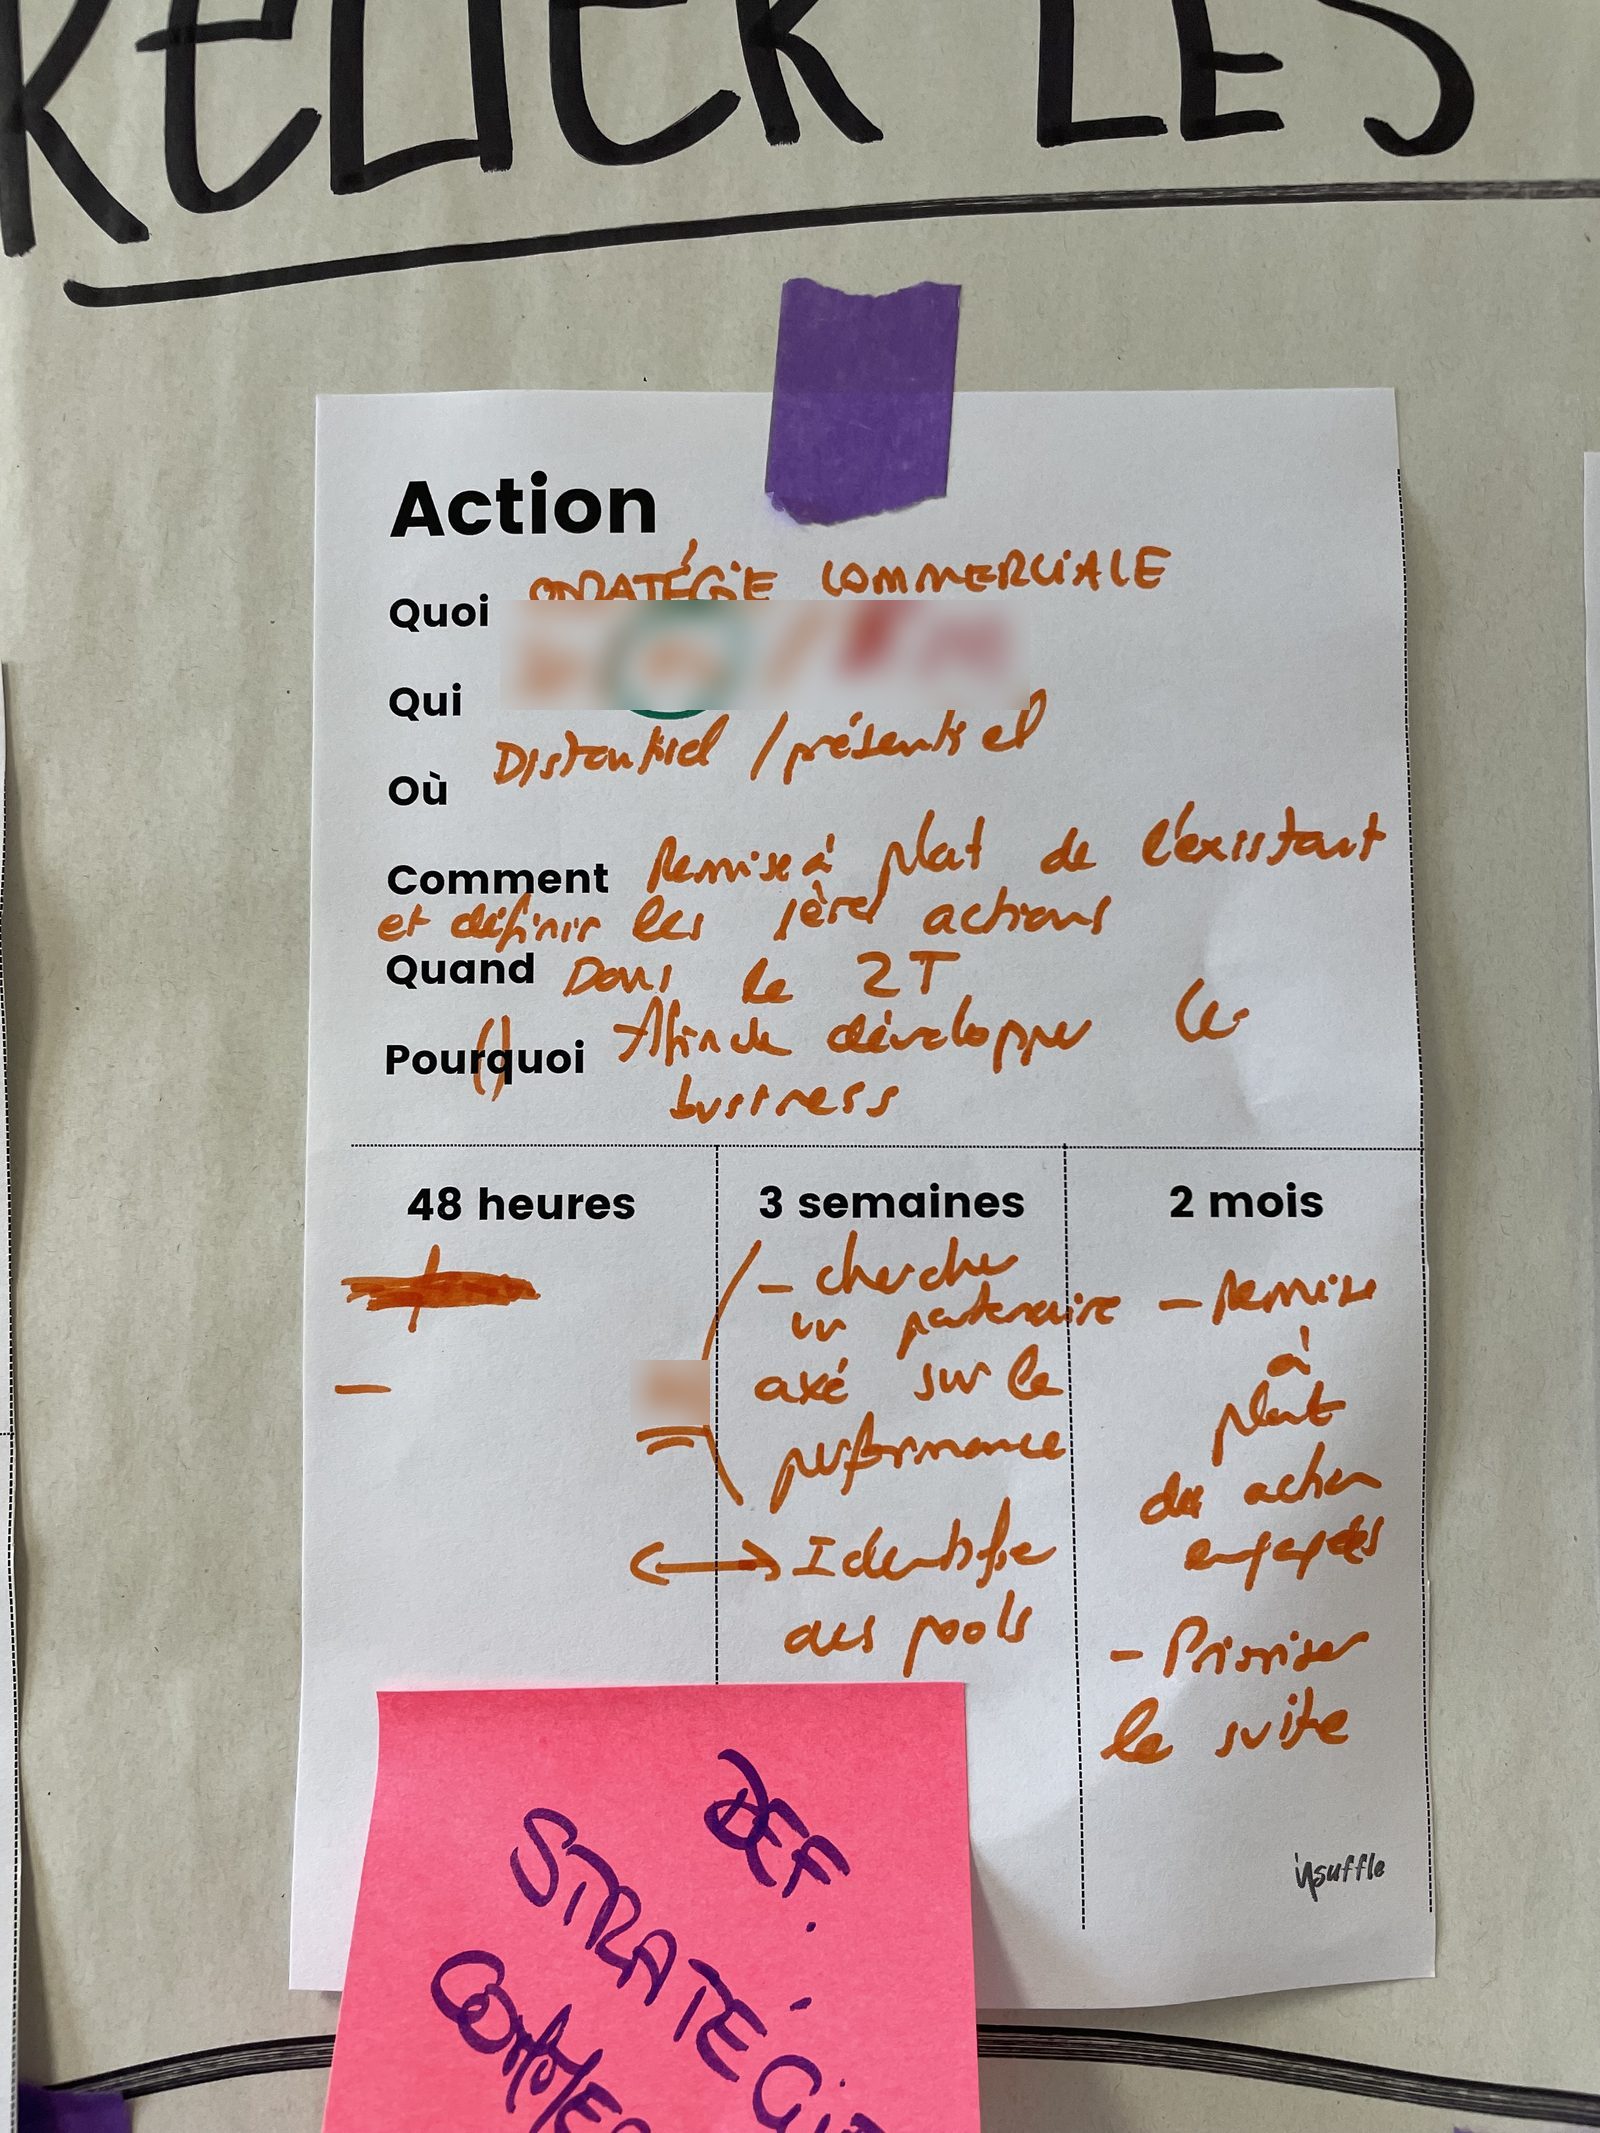 RELIER LES
Action
Quoi STRATÉGIE COMMERCIALE
Qui
Où Distantiel / présentiel
Comment Remise à plat de l'existant
et définir les 1ères actions
Quand Dans le 2T
Pourquoi Afin de développer le
business
48 heures
3 semaines
- chercher
un partenaire
axé sur la
performance
Identifier
des pools
2 mois
- Remise
à
plat
des action
engagées
- Prioriser
la suite
insuffle
DEF.
STRATÉGIE
COMME